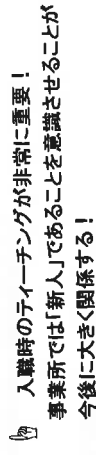 ☞ 入職時のティーチングが非常に重要！
事業所では「新人」であることを意識させることが
今後に大きく関係する！